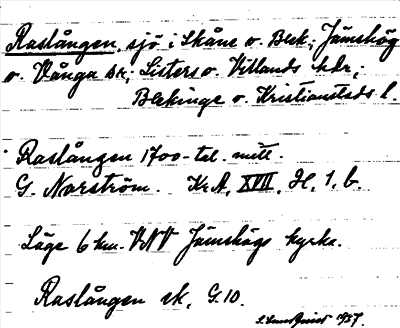 Raslången, sjö i Skåne o. Blek.; Jämshög
o. Vånga snr; Listers o. Villands hdr;
Blekinge o. Kristianstads l.
Raslången 1700-tal. mitt.
G. Norström. Kr.A, XVII, H, 1, b.
Läge 6 km. VNV Jämshögs kyrka.
Raslången sk, G.10.
S. Lundquist 1937.